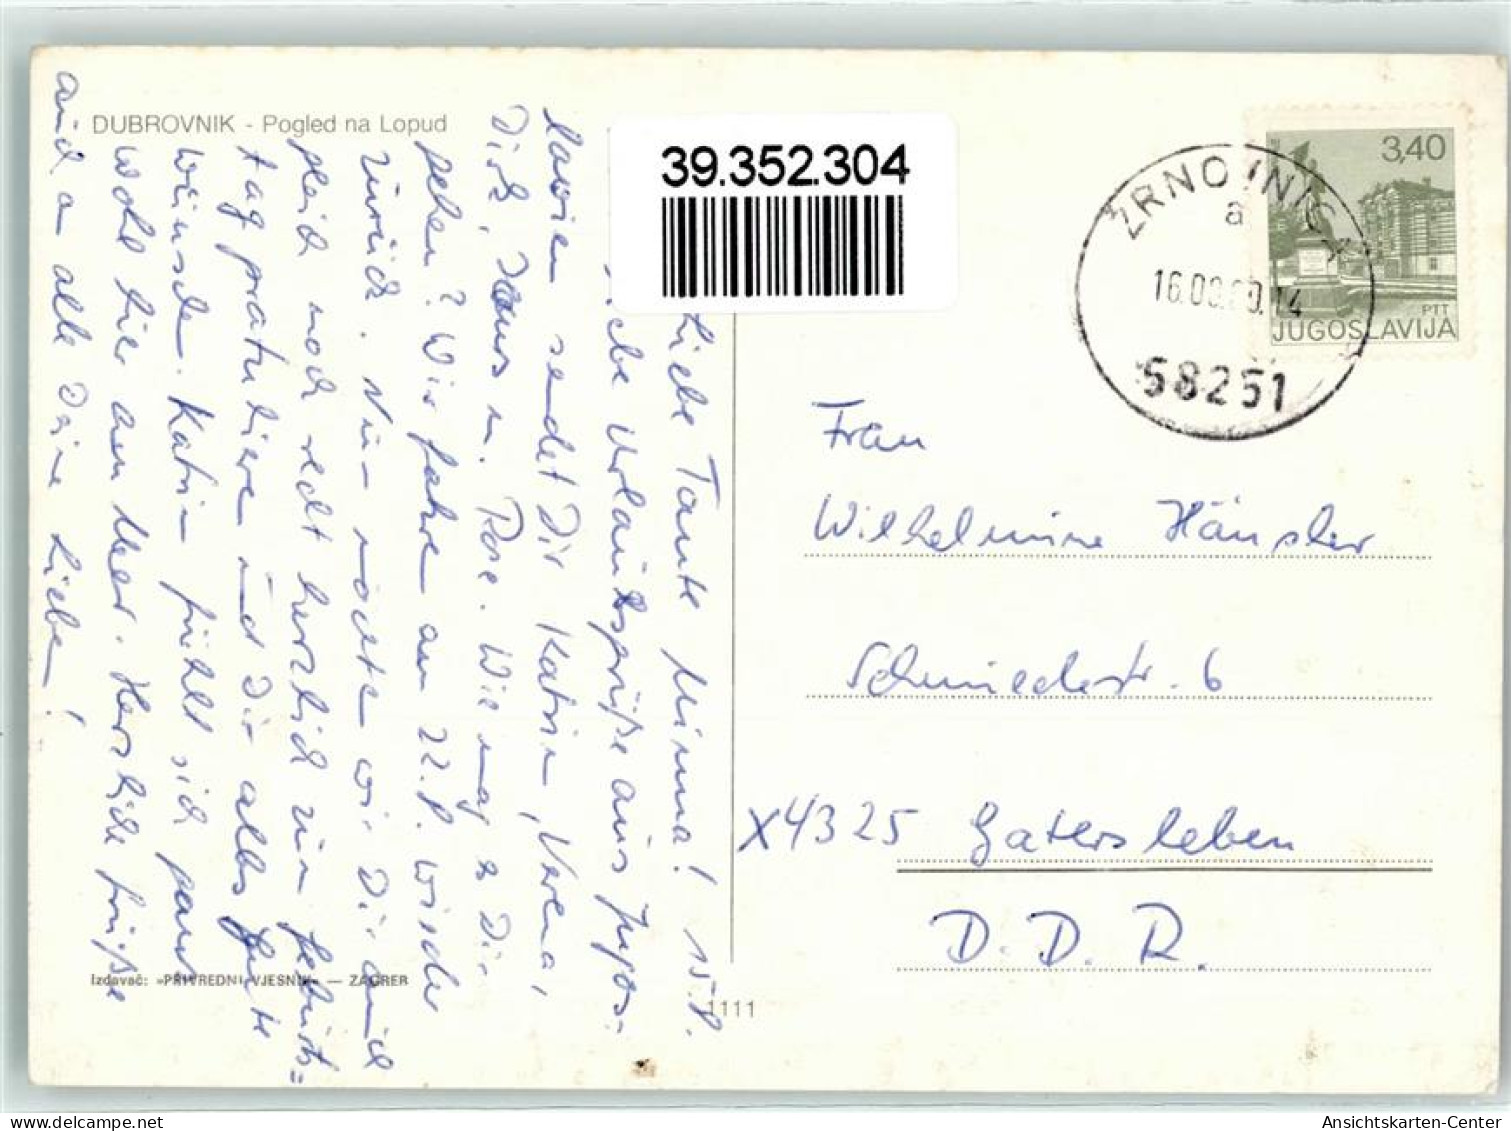 DUBROVNIK - Pogled na Lopud
39.352.304
3,40
PTT
JUGOSLAVIJA
ŽRNOVNICA
a
16.08.80.14
58251
15.8.
Liebe Tante Minna!
Liebe Urlaubsgrüße aus Jugos-
lawien sendet Dir Katrin, Verena,
Dirk, Hans u. Rose. Wie mag es Dir
gehen? Wir fahren am 22.8. wieder
zurück. Nun möchten wir Dir auch
gleich noch recht herzlich zum Geburts=
tag gratulieren und Dir alles Gute
wünschen. Katrin fühlt sich ganz
wohl hier am Meer. Herzliche Grüße
auch an alle Deine Lieben!
Frau
Wilhelmine Hänsler
Schmiedestr. 6
X4325 Gatersleben
D.D.R.
Izdavač: »PRIVREDNI VJESNIK« — ZAGREB
1111
Ansichtskarten-Center